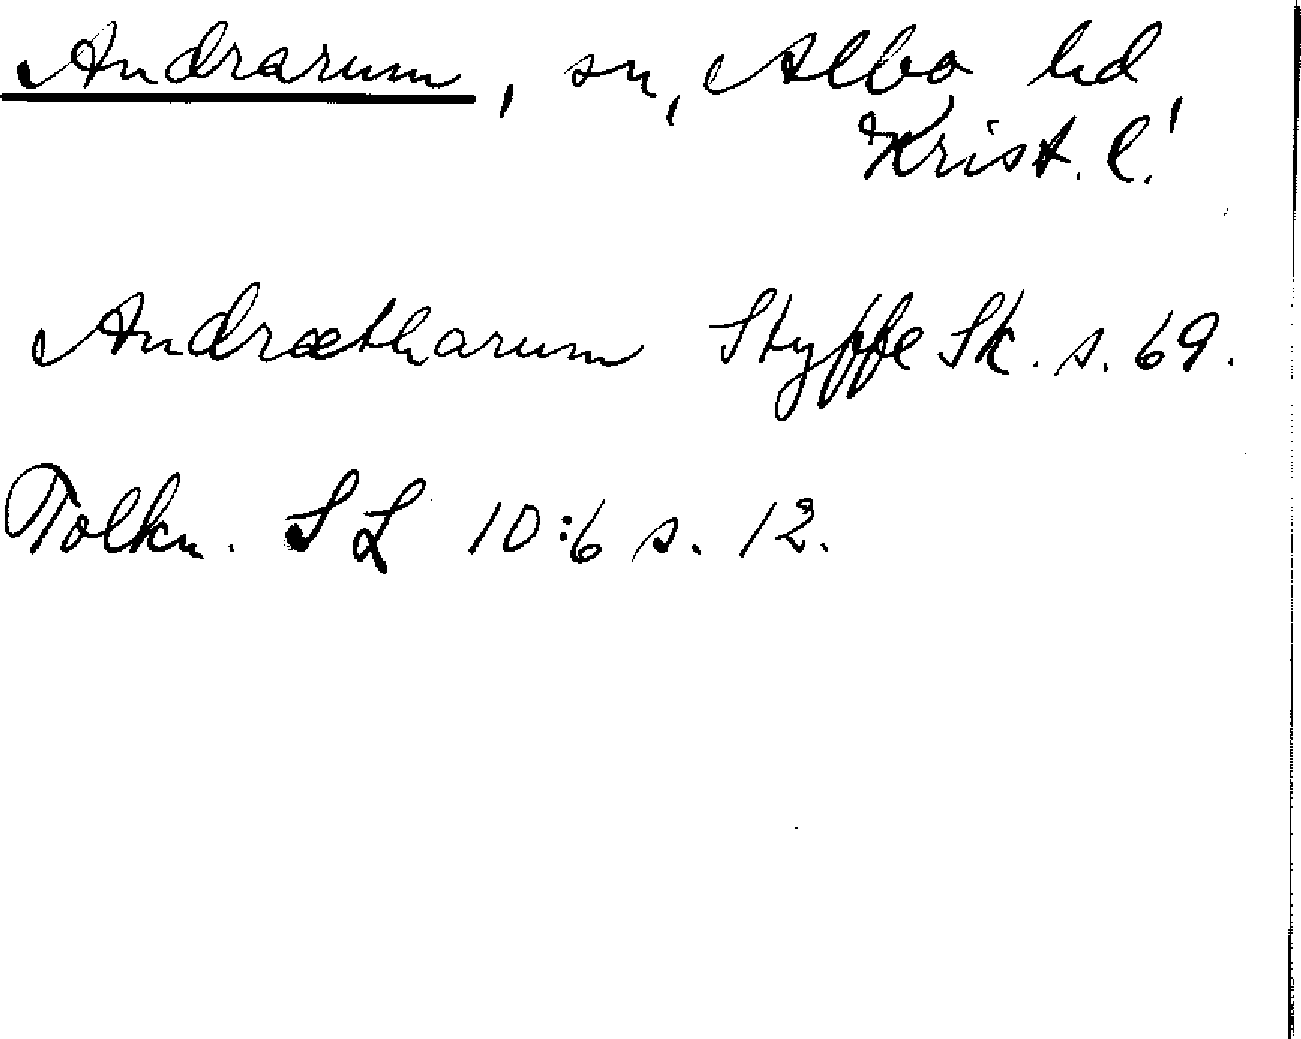 Andrarum, sn, Albo hd,
Krist. l.
Andrætharum Styffe Sk. s. 69.
Tolkn. SL 10:6 s. 12.